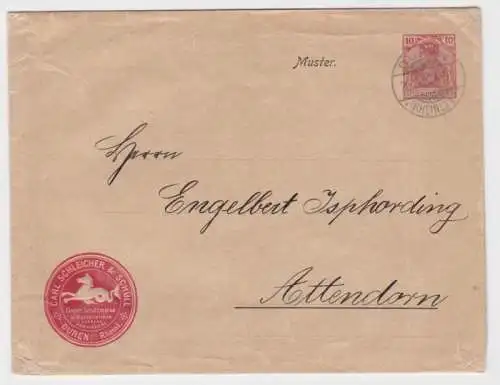 10 10
Muster.
Herrn
Engelbert Isphording
Attendorn
CARL SCHLEICHER & SCHÜLL
DÜREN Rheinl.